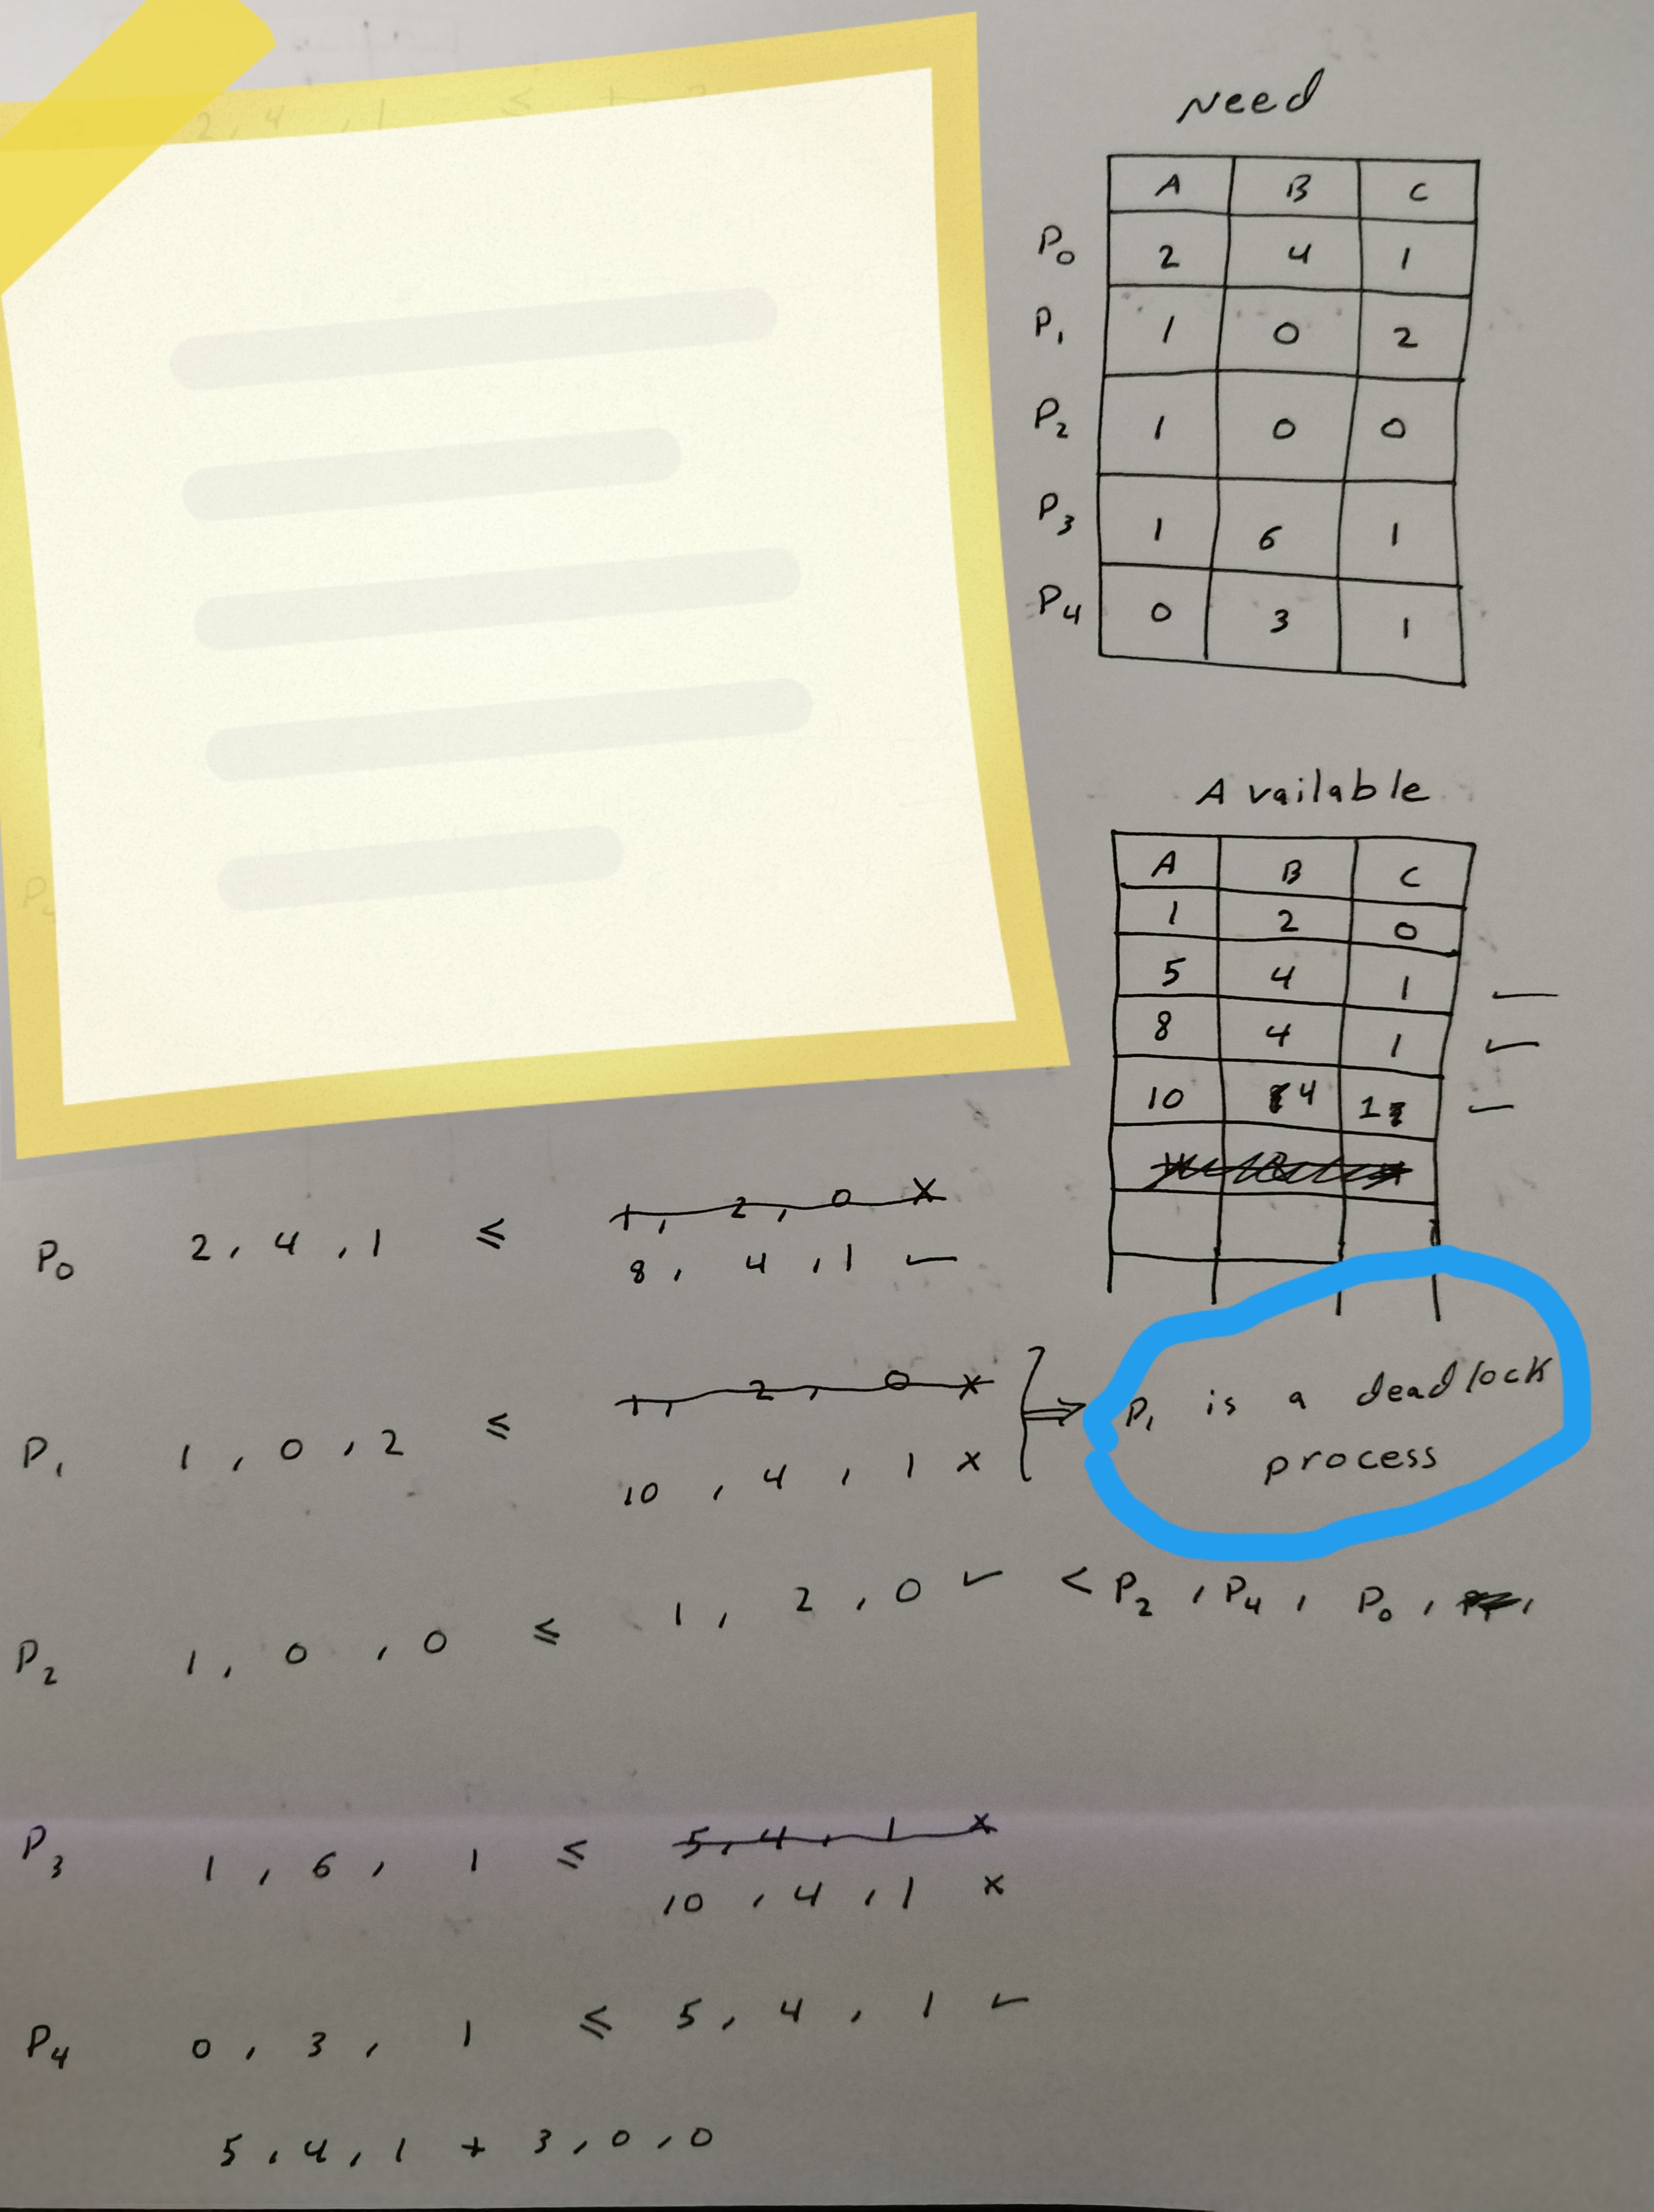 2, 4, 1 ≤
Need
A B C
P0 2 4 1
P1 1 0 2
P2 1 0 0
P3 1 6 1
P4 0 3 1
Available
A B C
1 2 0
5 4 1 ✓
8 4 1 ✓
10 4 1 ✓
P0 2, 4, 1 ≤ 1, 2, 0 ×
8, 4, 1 ✓
P1 1, 0, 2 ≤ 1, 2, 0 ×
10, 4, 1 ×
⇒ P1 is a deadlock
process
P2 1, 0, 0 ≤ 1, 2, 0 ✓ < P2, P4, P0, ,
P3 1, 6, 1 ≤ 5, 4, 1 ×
10, 4, 1 ×
P4 0, 3, 1 ≤ 5, 4, 1 ✓
5, 4, 1 + 3, 0, 0